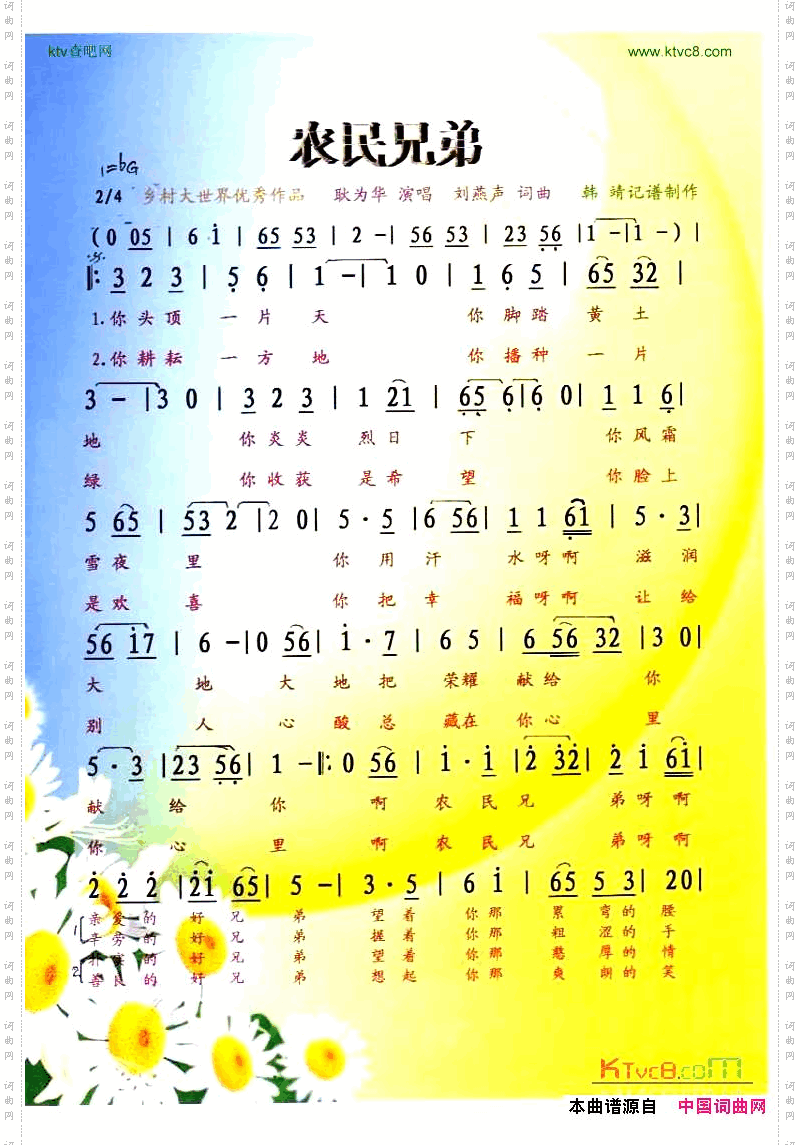 ktv查吧网 www.ktvc8.com
农民兄弟
1=bG
2/4 乡村大世界优秀作品 耿为华 演唱 刘燕声 词曲 韩 靖记谱制作
(0 05 | 6 i | 65 53 | 2 - | 56 53 | 23 56 | 1 - | 1 - ) |
‖: 3 2 3 | 5 6 | 1 - | 1 0 | 1 6 5 | 65 32 |
1.你头顶 一片 天 你脚踏 黄土
2.你耕耘 一方 地 你播种 一片
3 - | 3 0 | 3 2 3 | 1 21 | 65 6 | 6 0 | 1 1 6 |
地 你炎炎 烈日 下 你风霜
绿 你收获 是希 望 你脸上
5 65 | 53 2 | 2 0 | 5 · 5 | 6 56 | 1 1 61 | 5 · 3 |
雪夜 里 你用汗 水呀啊 滋润
是欢 喜 你把幸 福呀啊 让给
56 i7 | 6 - | 0 56 | i · 7 | 6 5 | 6 56 32 | 3 0 |
大 地 大地把 荣耀 献给 你
别 人 心酸总 藏在 你心 里
5 · 3 | 23 56 | 1 - :‖: 0 56 | i · i | 2 32 | 2 i 6i |
献 给 你 啊 农民兄 弟呀啊
你 心 里 啊 农民兄 弟呀啊
2 2 2 | 2i 65 | 5 - | 3 · 5 | 6 i | 65 5 3 | 20 |
1 亲爱的 好兄 弟 望着 你那 累弯的 腰
辛劳的 好兄 弟 握着 你那 粗涩的 手
2 朴实的 好兄 弟 望着 你那 憨厚的 情
善良的 好兄 弟 想起 你那 爽朗的 笑
KTvc8.com
本曲谱源自 中国词曲网